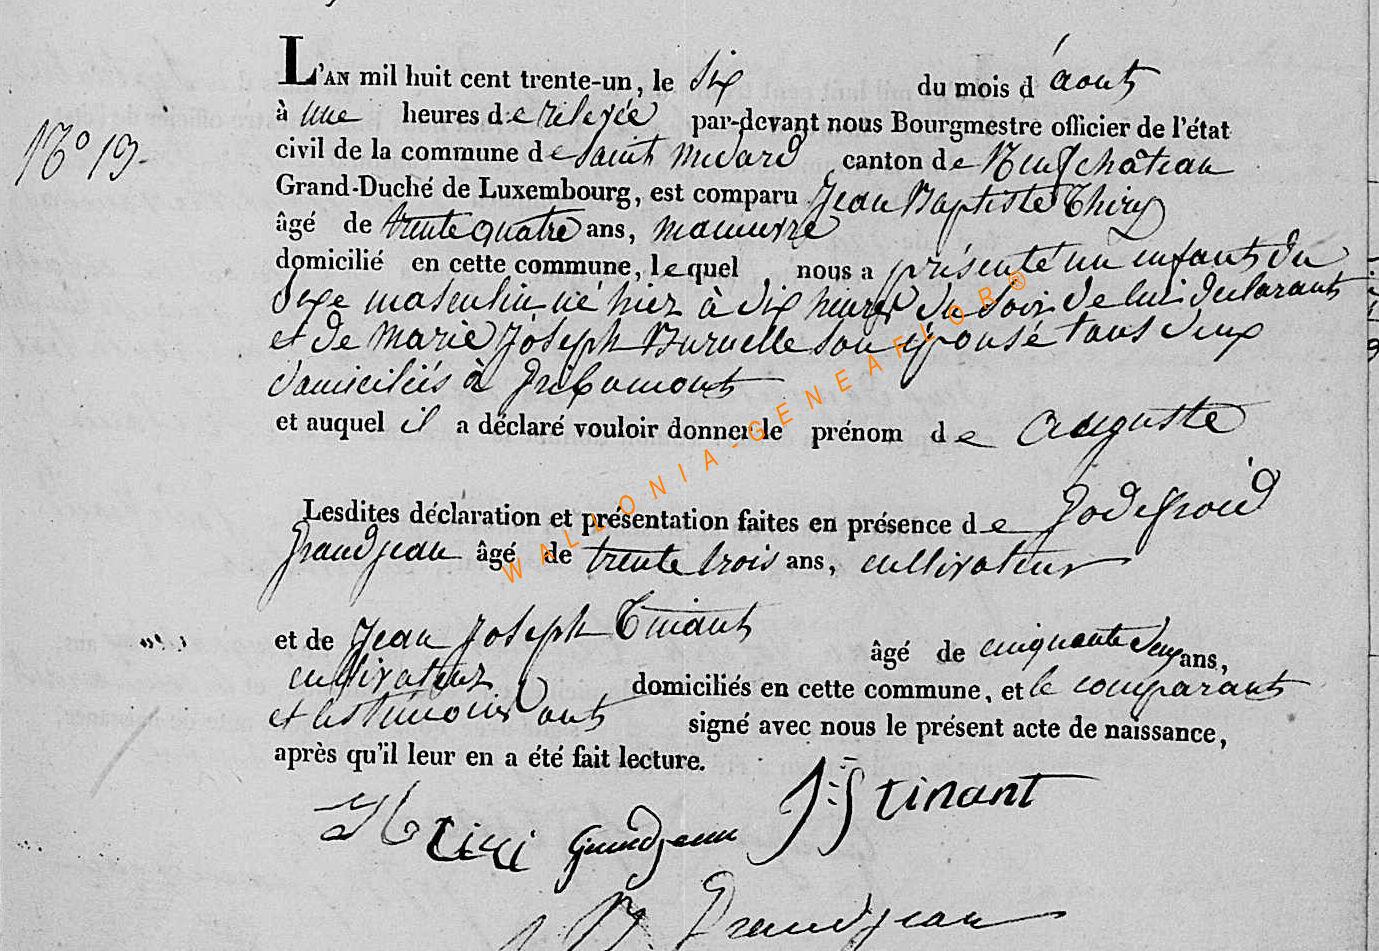 L'AN mil huit cent trente-un, le six du mois d'aout
à une heures de relevée par-devant nous Bourgmestre officier de l'état
N° 19.
civil de la commune de saint medard canton de Neufchâteau
Grand-Duché de Luxembourg, est comparu Jean Baptiste Thiry
âgé de trente quatre ans, manuvre
domicilié en cette commune, lequel nous a présenté un enfant du
sexe masculin né hier à dix heures du soir de lui declarant
et de Marie Joseph Buruelle son épouse tous deux
domiciliés à Gribomont
et auquel il a déclaré vouloir donner le prénom de Auguste
Lesdites déclaration et présentation faites en présence de Godefroid
Grandjean âgé de trente trois ans, cultivateur
et de Jean Joseph Tinant âgé de cinquante deux ans,
cultivateur domiciliés en cette commune, et le comparant
et les temoins ont signé avec nous le présent acte de naissance,
après qu'il leur en a été fait lecture.
J:J tinant
Grandjean
Grandjean
WALLONIA-GENEAFLOR®